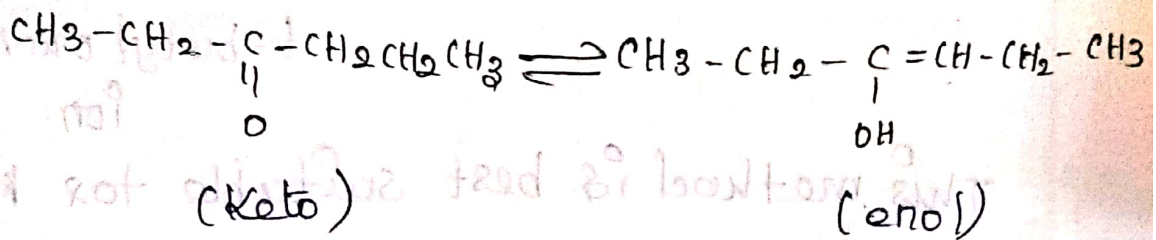 CH3-CH2-C-CH2CH2CH3 ⇌ CH3-CH2-C=CH-CH2-CH3
||
|
O
OH
(Keto)
(enol)